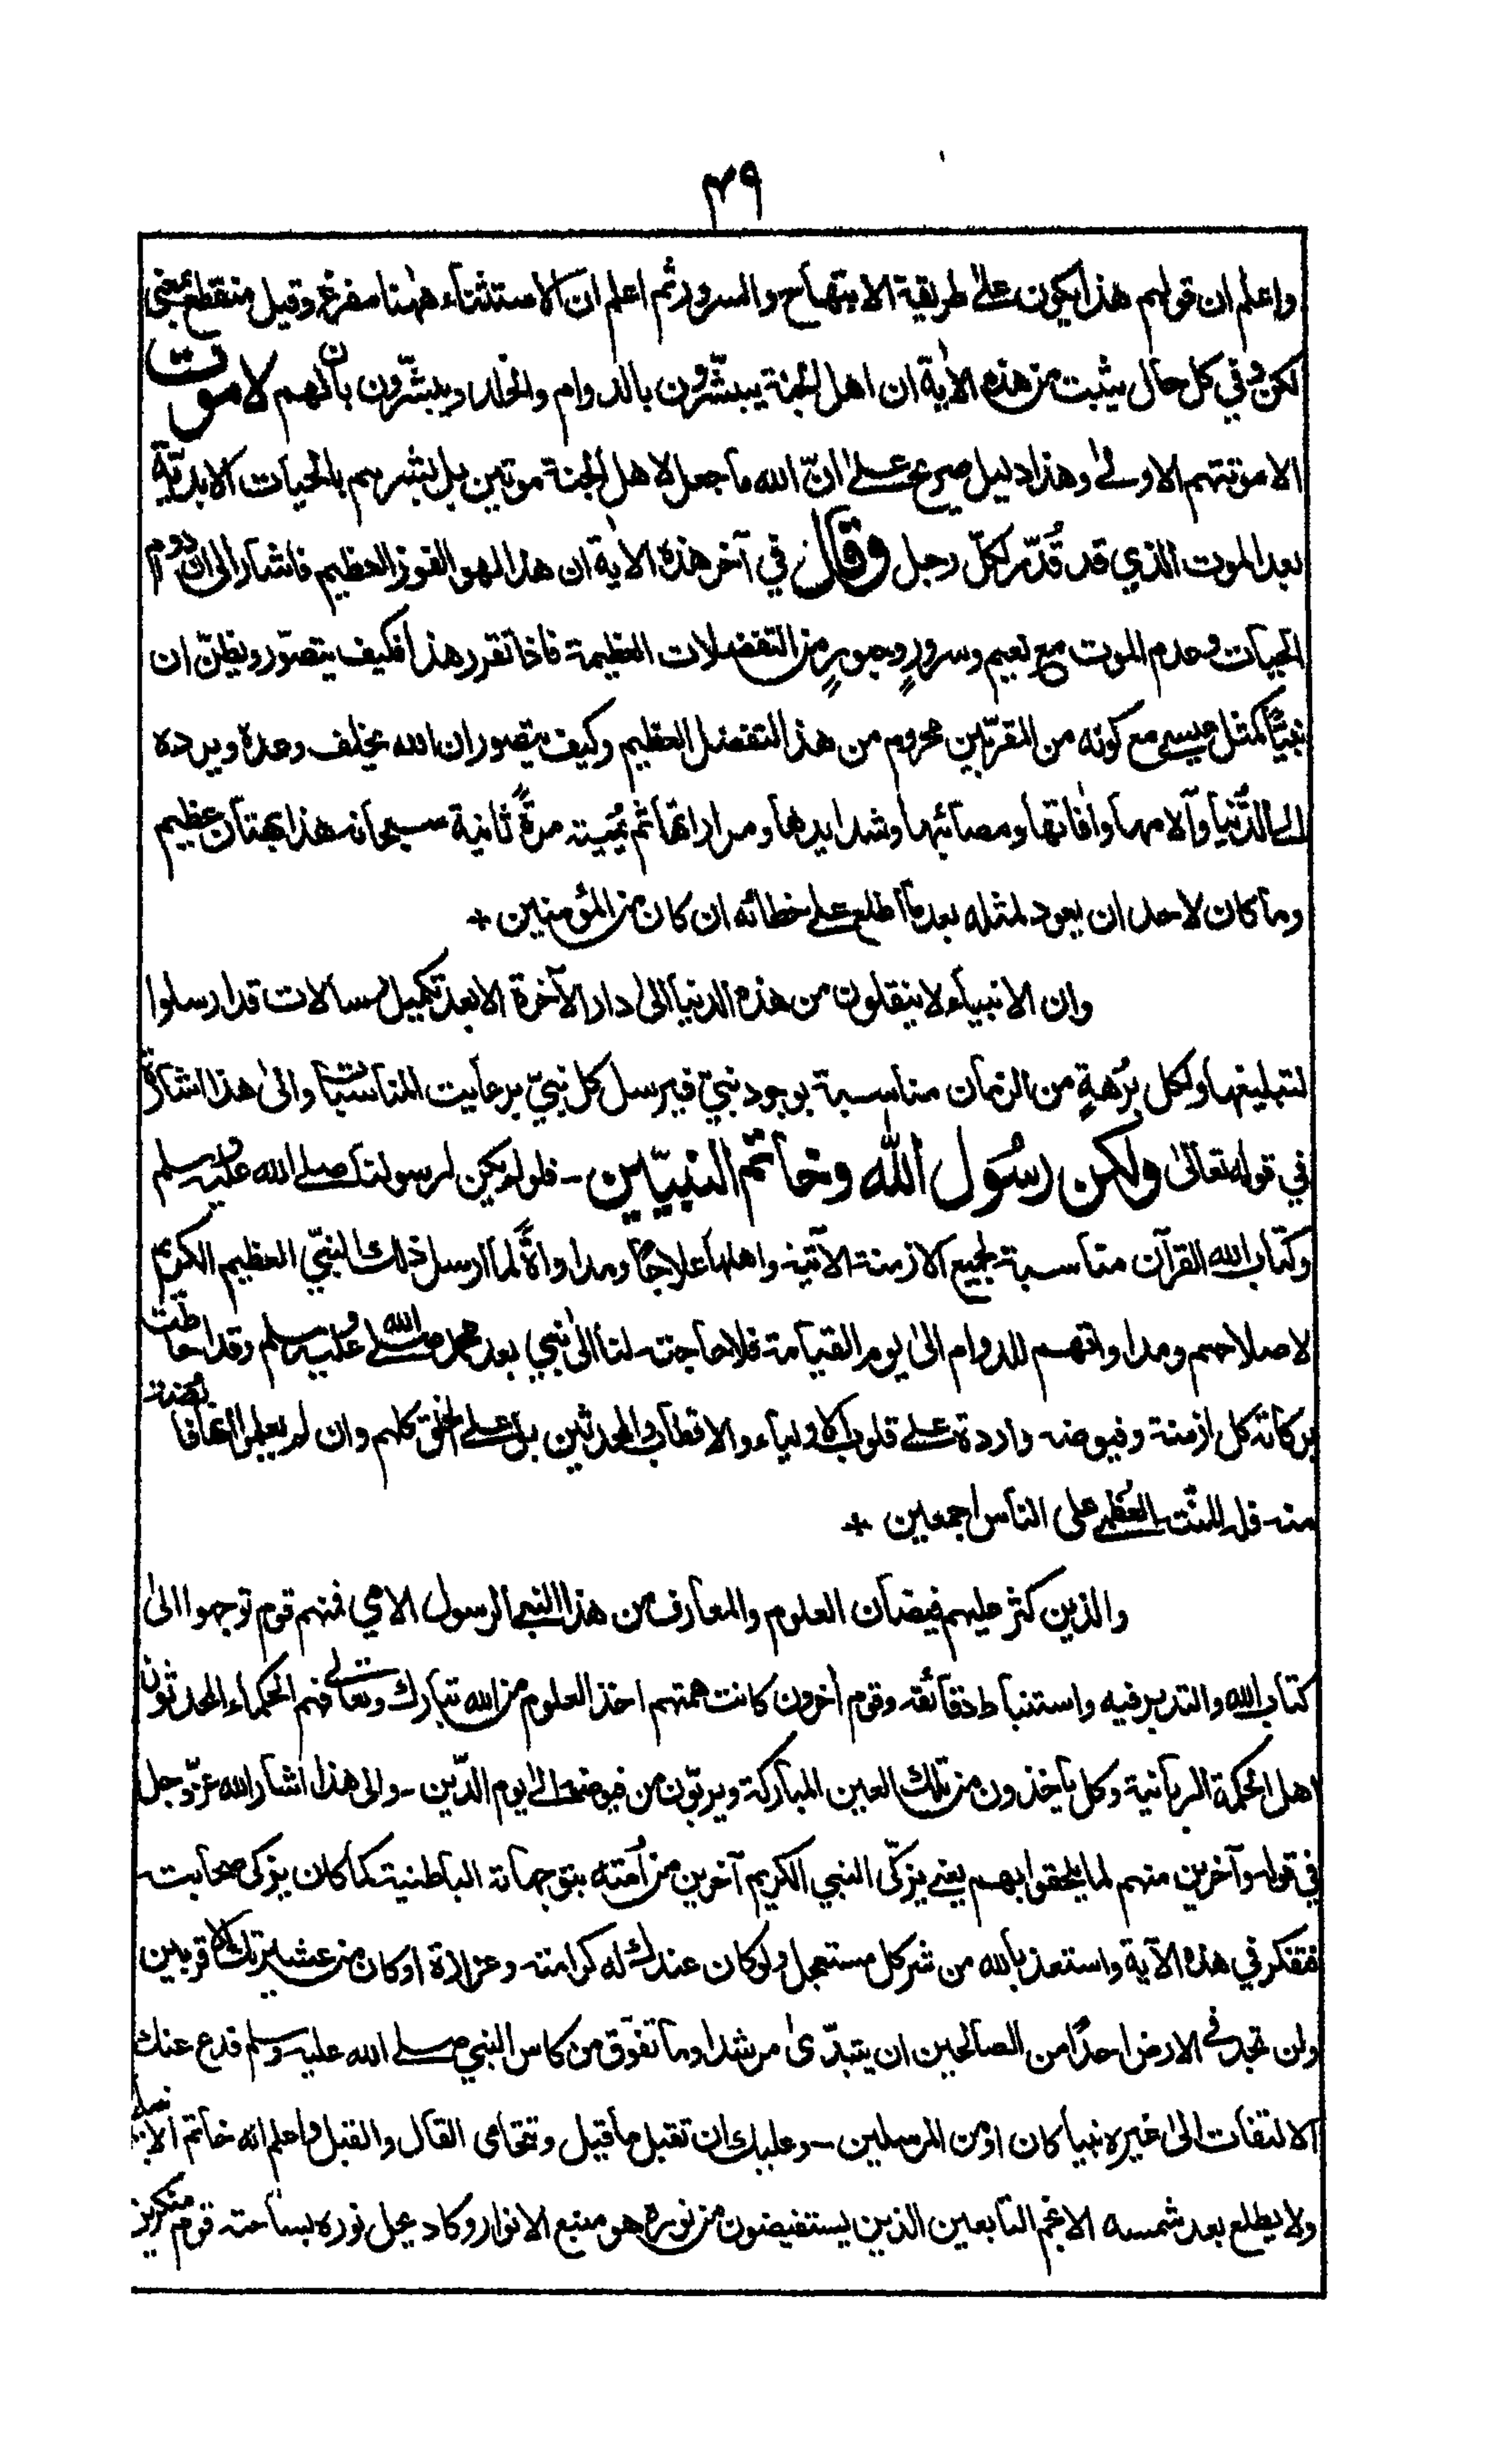 ٤٩
واعلم ان قولهم هذا يكون على طريقة الابتهاج والسرور ثم اعلم ان الاستثناء ههنا مفرغ وقيل منقطع بمعنى
لكن وفي كل حال يثبت من هذه الأية ان اهل الجنة يبشّرون بالدوام والخلد ويبشّرون بان لهم لا موت
الا موتتهم الاولى وهذا دليل صريح على انّ الله ما جعل لاهل الجنة موتين بل بشرهم بالحيات الابديّة
بعد الموت الذي قد قُدّر لكلّ رجل وقال في آخر هذه الأية ان هذا لهو الفوز العظيم فاشار الى ان دوام
الحيات وعدم الموت مع نعيم وسرورٍ وحبورٍ من التفضلات العظيمة فاذا تقرر هذا فكيف يتصوّر ويظنّ ان
نبيًّا كمثل عيسى مع كونه من المقرّبين محروم من هذا التفضل العظيم وكيف يتصور ان الله يخلف وعده ويرده
الى الدُّنيا وآلامها وأفاتها ومصائبها وشدايدها ومراراتها ثم يُميته مرةً ثانية سبحانه هذا بهتان عظيم
وما كان لاحد ان يعود لمثله بعد ما اطلع على خطائه ان كان من المؤمنين +
وان الانبياء لا ينقلون من هذه الدنيا الى دار الآخرة الا بعد تكميل رسالات قد ارسلوا
لتبليغها ولكل بُرهةٍ من الزمان مناسبة بوجود نبيّ فيرسل كل نبيّ برعايت المناسبات والى هذا اشارة
في قوله تعالى ولكن رسُول الله وخاتم النبيّين - فلو لم يكن لرسولنا صلى الله عليه وسلم
وكتاب الله القرآن مناسبة لجميع الازمنة الآتية واهلها علاجًا ومداواةً لما ارسل ذلك النبيّ العظيم الكريم
لاصلاحهم ومداواتهم للدوام الى يوم القيامة فلا حاجة لنا الى نبي بعد محمد صلى الله عليه وسلم وقد احاطت
بركاته كل ازمنة وفيوضه واردة على قلوب الاولياء والاقطاب والمحدثين بل على الخلق كلهم وان لم يعلموا انها فائضة
منه فله المنّة العُظمى على الناس اجمعين +
والذين كثر عليهم فيضان العلوم والمعارف من هذا النبي الرسول الامي فمنهم قوم توجهوا الى
كتاب الله والتدبر فيه واستنباط دقائقه وقوم أخرون كانت همتهم اخذ العلوم من الله تبارك وتعالى فهم الحكماء المحدثون
اهل الحكمة الربانية وكل يأخذون من تلك العين المباركة ويربّون من فيوضه الى يوم الدّين - والى هذا اشار الله عزّ وجل
في قوله وآخرين منهم لما يلحقوا بهم يعني يزكّى النبي الكريم آخرين من اُمّته بتوجهاته الباطنية كما كان يزكى صحابته
فتفكر في هذه الآية واستعذ بالله من شر كل مستعجل ولو كان عندك له كرامة وعزازة او كان من عشيرتك الاقربين
ولن تجد في الارض احدًا من الصالحين ان يتبدّىٰ مرشدا وما تفوّق من كاس النبي صلى الله عليه وسلم فدع عنك
الالتفات الى غيره نبيا كان او من المرسلين - وعليك ان تقبل ما قيل وتتحامى القال والقيل واعلم انه خاتم الانبياء
ولا يطلع بعد شمسه الا نجم التابعين الذين يستفيضون من نوره هو منبع الانوار وكاد يحل نوره بساحة قوم منكرين